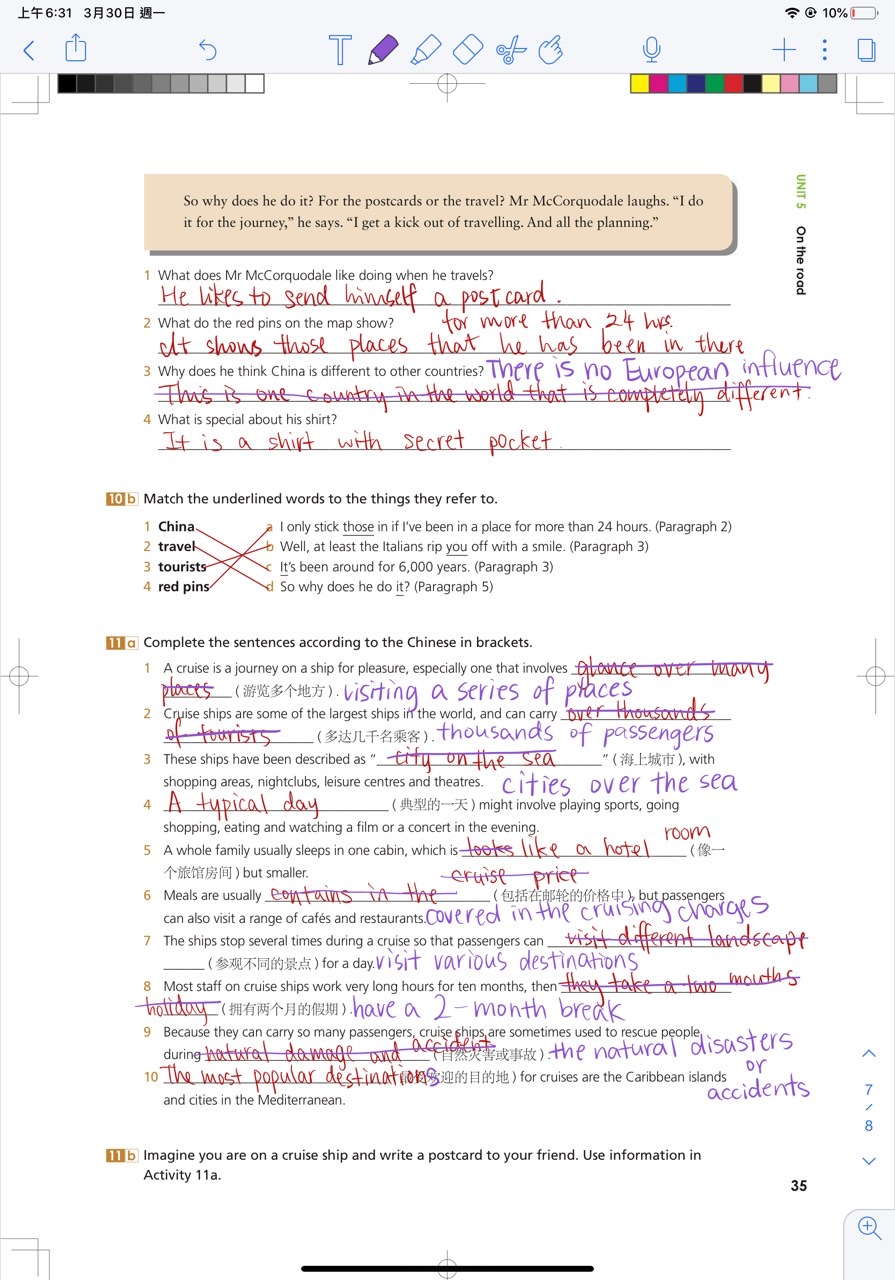 上午6:31 3月30日 週一
10%
T
So why does he do it? For the postcards or the travel? Mr McCorquodale laughs. “I do
it for the journey,” he says. “I get a kick out of travelling. And all the planning.”
UNIT 5 On the road
1 What does Mr McCorquodale like doing when he travels?
He likes to send himself a postcard.
2 What do the red pins on the map show?
for more than 24 hrs.
It shows those places that he has been in there
3 Why does he think China is different to other countries? There is no European influence
This is one country in the world that is completely different.
4 What is special about his shirt?
It is a shirt with secret pocket.
10 b Match the underlined words to the things they refer to.
1 China a I only stick those in if I’ve been in a place for more than 24 hours. (Paragraph 2)
2 travel b Well, at least the Italians rip you off with a smile. (Paragraph 3)
3 tourists c It’s been around for 6,000 years. (Paragraph 3)
4 red pins d So why does he do it? (Paragraph 5)
11 a Complete the sentences according to the Chinese in brackets.
1 A cruise is a journey on a ship for pleasure, especially one that involves glance over many
places (游览多个地方). visiting a series of places
2 Cruise ships are some of the largest ships in the world, and can carry over thousands
of tourists (多达几千名乘客). thousands of passengers
3 These ships have been described as “city on the sea” (海上城市), with
shopping areas, nightclubs, leisure centres and theatres. cities over the sea
4 A typical day (典型的一天) might involve playing sports, going
shopping, eating and watching a film or a concert in the evening.
room
5 A whole family usually sleeps in one cabin, which is looks like a hotel (像一
个旅馆房间) but smaller.
cruise price
6 Meals are usually contains in the (包括在邮轮的价格中), but passengers
can also visit a range of cafés and restaurants. covered in the cruising charges
7 The ships stop several times during a cruise so that passengers can visit different landscape
(参观不同的景点) for a day. visit various destinations
8 Most staff on cruise ships work very long hours for ten months, then they take a two mouths
holiday (拥有两个月的假期). have a 2-month break
9 Because they can carry so many passengers, cruise ships are sometimes used to rescue people
during natural damage and accident (自然灾害或事故). the natural disasters
or
accidents
10 The most popular destinations 欢迎的目的地) for cruises are the Caribbean islands
and cities in the Mediterranean.
11 b Imagine you are on a cruise ship and write a postcard to your friend. Use information in
Activity 11a.
35
7
/
8